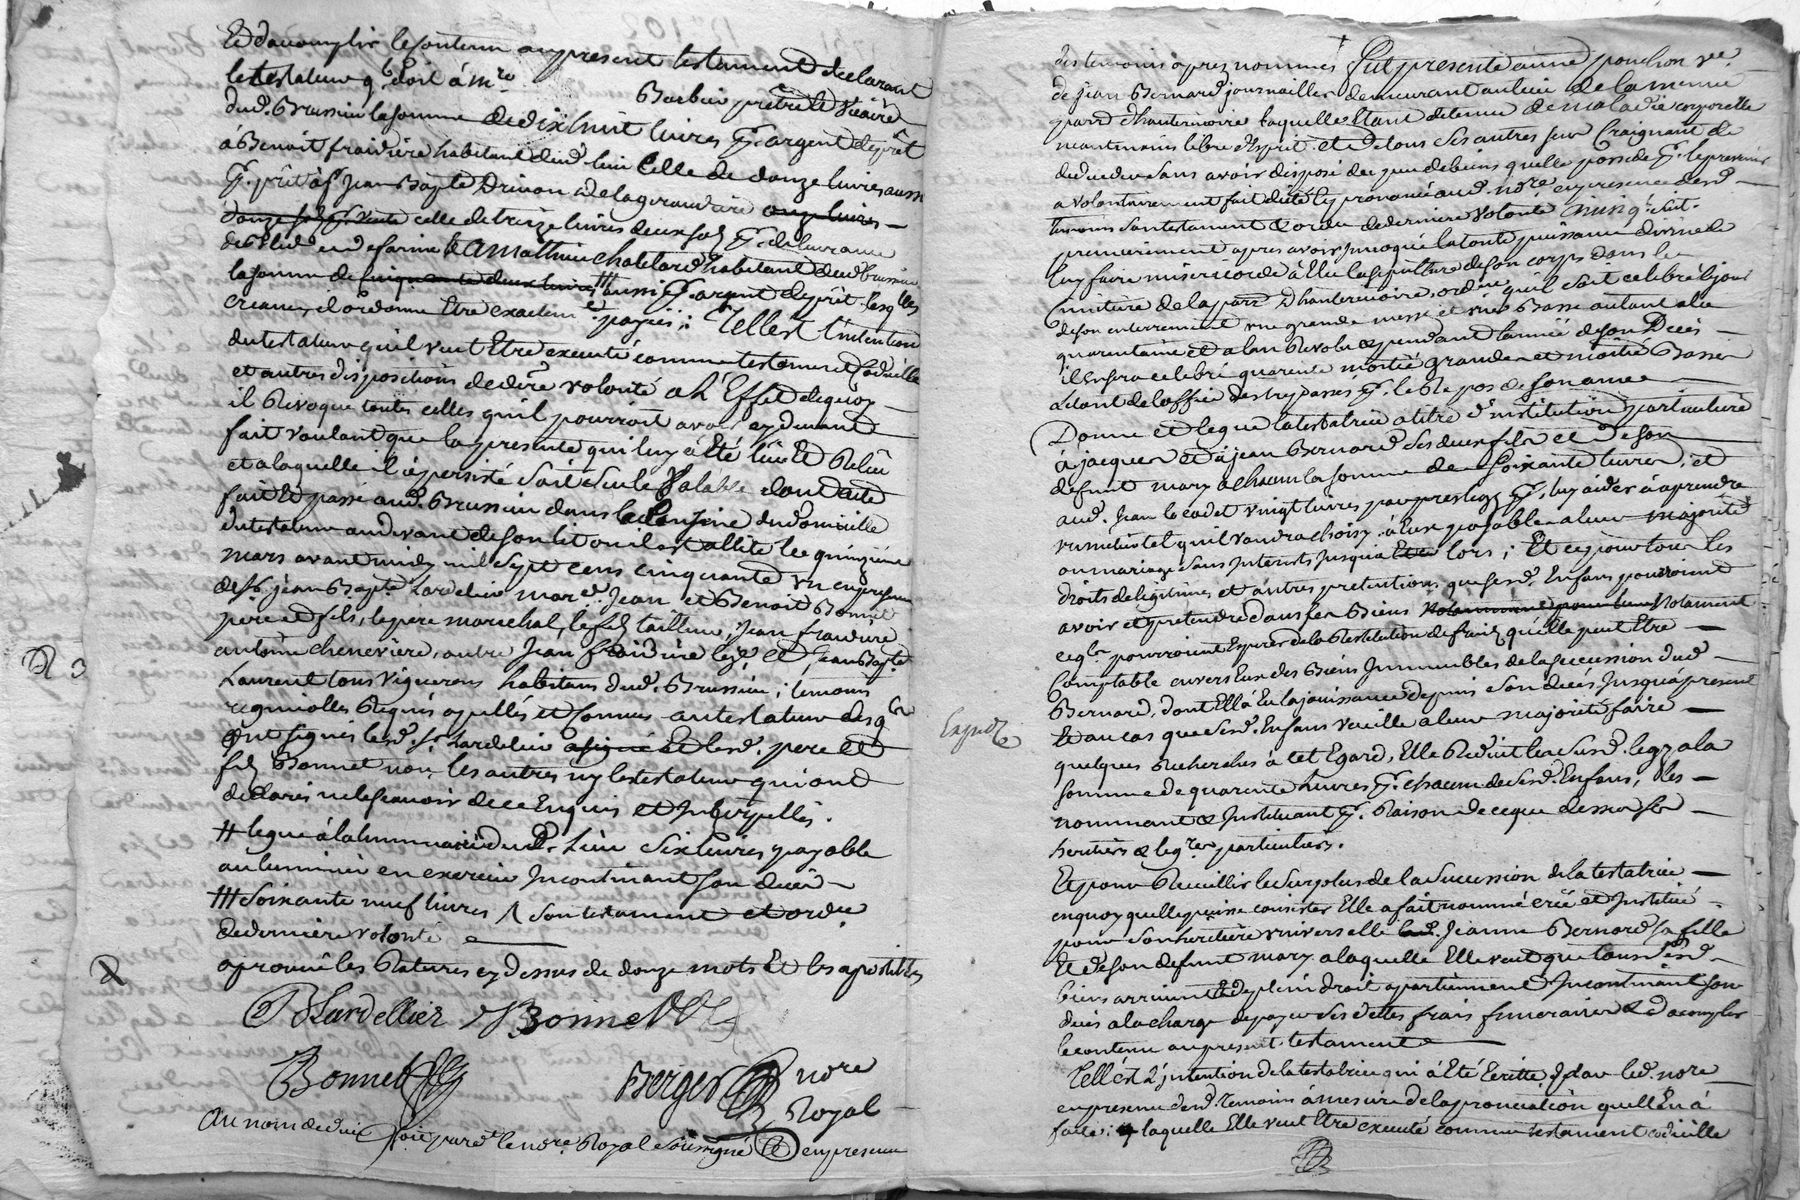 Et d'acomplir le contenu au present testament declarant
le testateur q'l doit à mre
Barbier prêtre et vicaire
dud. Brussieu la somme de dix huit livres pr. argent de prêt
à Benoit fraidiere habitant dud. lieu celle de douze livres aussi
pr. prêt à sr Jean Bapte Drivon de la giraudiere onze livres
douze sols pr. vente celle de treize livres deux sols pr. delivrance
de bled et de farine & a Mathieu chatelard habitant dud. brussieu
la somme de cinquante deux livres ⧻ aussi pr. argent de prêt lesqlles
creances il ordonne Etre exactemt payées : Telle est l'intention
du testateur qu'il veut Etre executé comme testament codicille
et autres dispositions de dere volonté a L'Effet de quoy
il Revoque toutes celles qu'il pourroit avoir cy devant
fait voulant que la presente qui luy à Eté lüe Et Relüe
et a laquelle il a persisté soit seule valable dont acte
fait Et passé aud. Brussieu dans la Cuisine du Domicille
du testateur au devant de son lit ou il est allité le quinzieme
mars avant midy mil sept cens cinquante un en presence
de sr. jean Bapte Lardelier mard. Jean et Benoit Bonnet
pere et fils, le pere marechal, le fils tailleur, Jean fraidiere
antoine chenevière, autre Jean fraidiere et Jean Bapte
Laurent tous vignerons habitans dud. Brussieu ; temoins
regnicolles Requis apellés et Connus au testateur desqls
ont signés led. sr. Lardelier a signé Et lesd. pere et
fils Bonnet non les autres ny le testateur qui ont
declarés ne le sçavoir de ce Enquis et Interpellés.
⧺ legue à la luminaire dud. Lieu six livres payable
au luminier en exercice Incontinant son decès
⧻ soixante neuf livres / son testament et ordce
de derniere volonté
aprouvé les Ratures cy dessus de douze mots Et les apostilles
JB Lardellier B Bonnet
Bonnet Berger nore
Royal
Au nom de dieu soit pardt. le nore. Royal soussigné & en presence
des temoins apres nommés fut presente aimé ponchon ve
de jean Bernard journailler demeurant au lieu de la meme
parr. d'hauterivoire laquelle Etant detenue de maladie corporelle
neantmoins libre d'Esprit et de tous ses autres sens Craignant de
deceder sans avoir disposé du peu de biens qu'elle possede pr. le present
a volontairement fait dicté et prononcé aud. nore en presence desd.
temoins son testament & ordce de derniere volonté ainsi q. suit.
premierement apres avoir Invoqué la toute puissance divine de
luy faire misericorde à Elu la sepulture de son corps dans le
Cimitiere de la parr. d'hauterivoire, ordne qu'il soit celebré le jour
de son enterrement une grande messe et une Basse autant a la
quarantaine et a l'an Revolu & pendant l'année de son Decès
il en sera celebré quarante moitié grandes et moitié Basses
Letout de l'office des trepassés pr. le Repos de son ame
Donne et legue la testatrice a titre d'institution particuliere
à jacques et à jean Bernard ses deux fils et de son
defunt mary a chacun la somme de soixante livres, et
aud. Jean le cadet vingt livres par preslegs pr. luy aider à aprendre
un métier tel qu'il voudra choisir à Eux payable a leur majorité
ou mariage sans Interets jusqu'a lors ; Et ce pour tous les
droits de legitimes et autres pretentions que sesd. Enfans pourroient
avoir et pretendre dans ses Biens Notament
ceqls pourroient Esperer de la Restitution de fruits qu'elle peut Etre
Comptable envers Eux des Biens Immeubles de la succession dud.
Bernard, dont Elle à Eu la jouissance depuis son decés Jusqu'a present
Et au cas que sesd. Enfans veuille a leur majorité faire
quelques Recherches à cet Egard, Elle Reduit les susd. legs a la
somme de quarante livres pr. chacun de sesd. Enfans ; les
nommant & Instituant pr. Raison de ce que dessus ses
heritiers & legres particuliers.
Et pour Recuillir le surplus de la succession de la testatrice
en quoy quelle puisse consister Elle a fait nommé créé et Institué
pour son heritière universelle Jeanne Bernard sa fille
Et de son defunt mary a laquelle Elle veut que tous sesd.
biens arrivent & de plein droit apartiennent Incontinant son
decés a la charge de payer ses dettes frais funeraires & d'acomplir
le contenu au present testament
Telle est L'intention de la testatrice qui à Eté Ecritte par led. nore
en presence desd. temoins à mesure de la pronciation quelle En à
faite ; laquelle Elle veut Etre executé comme testament codicille